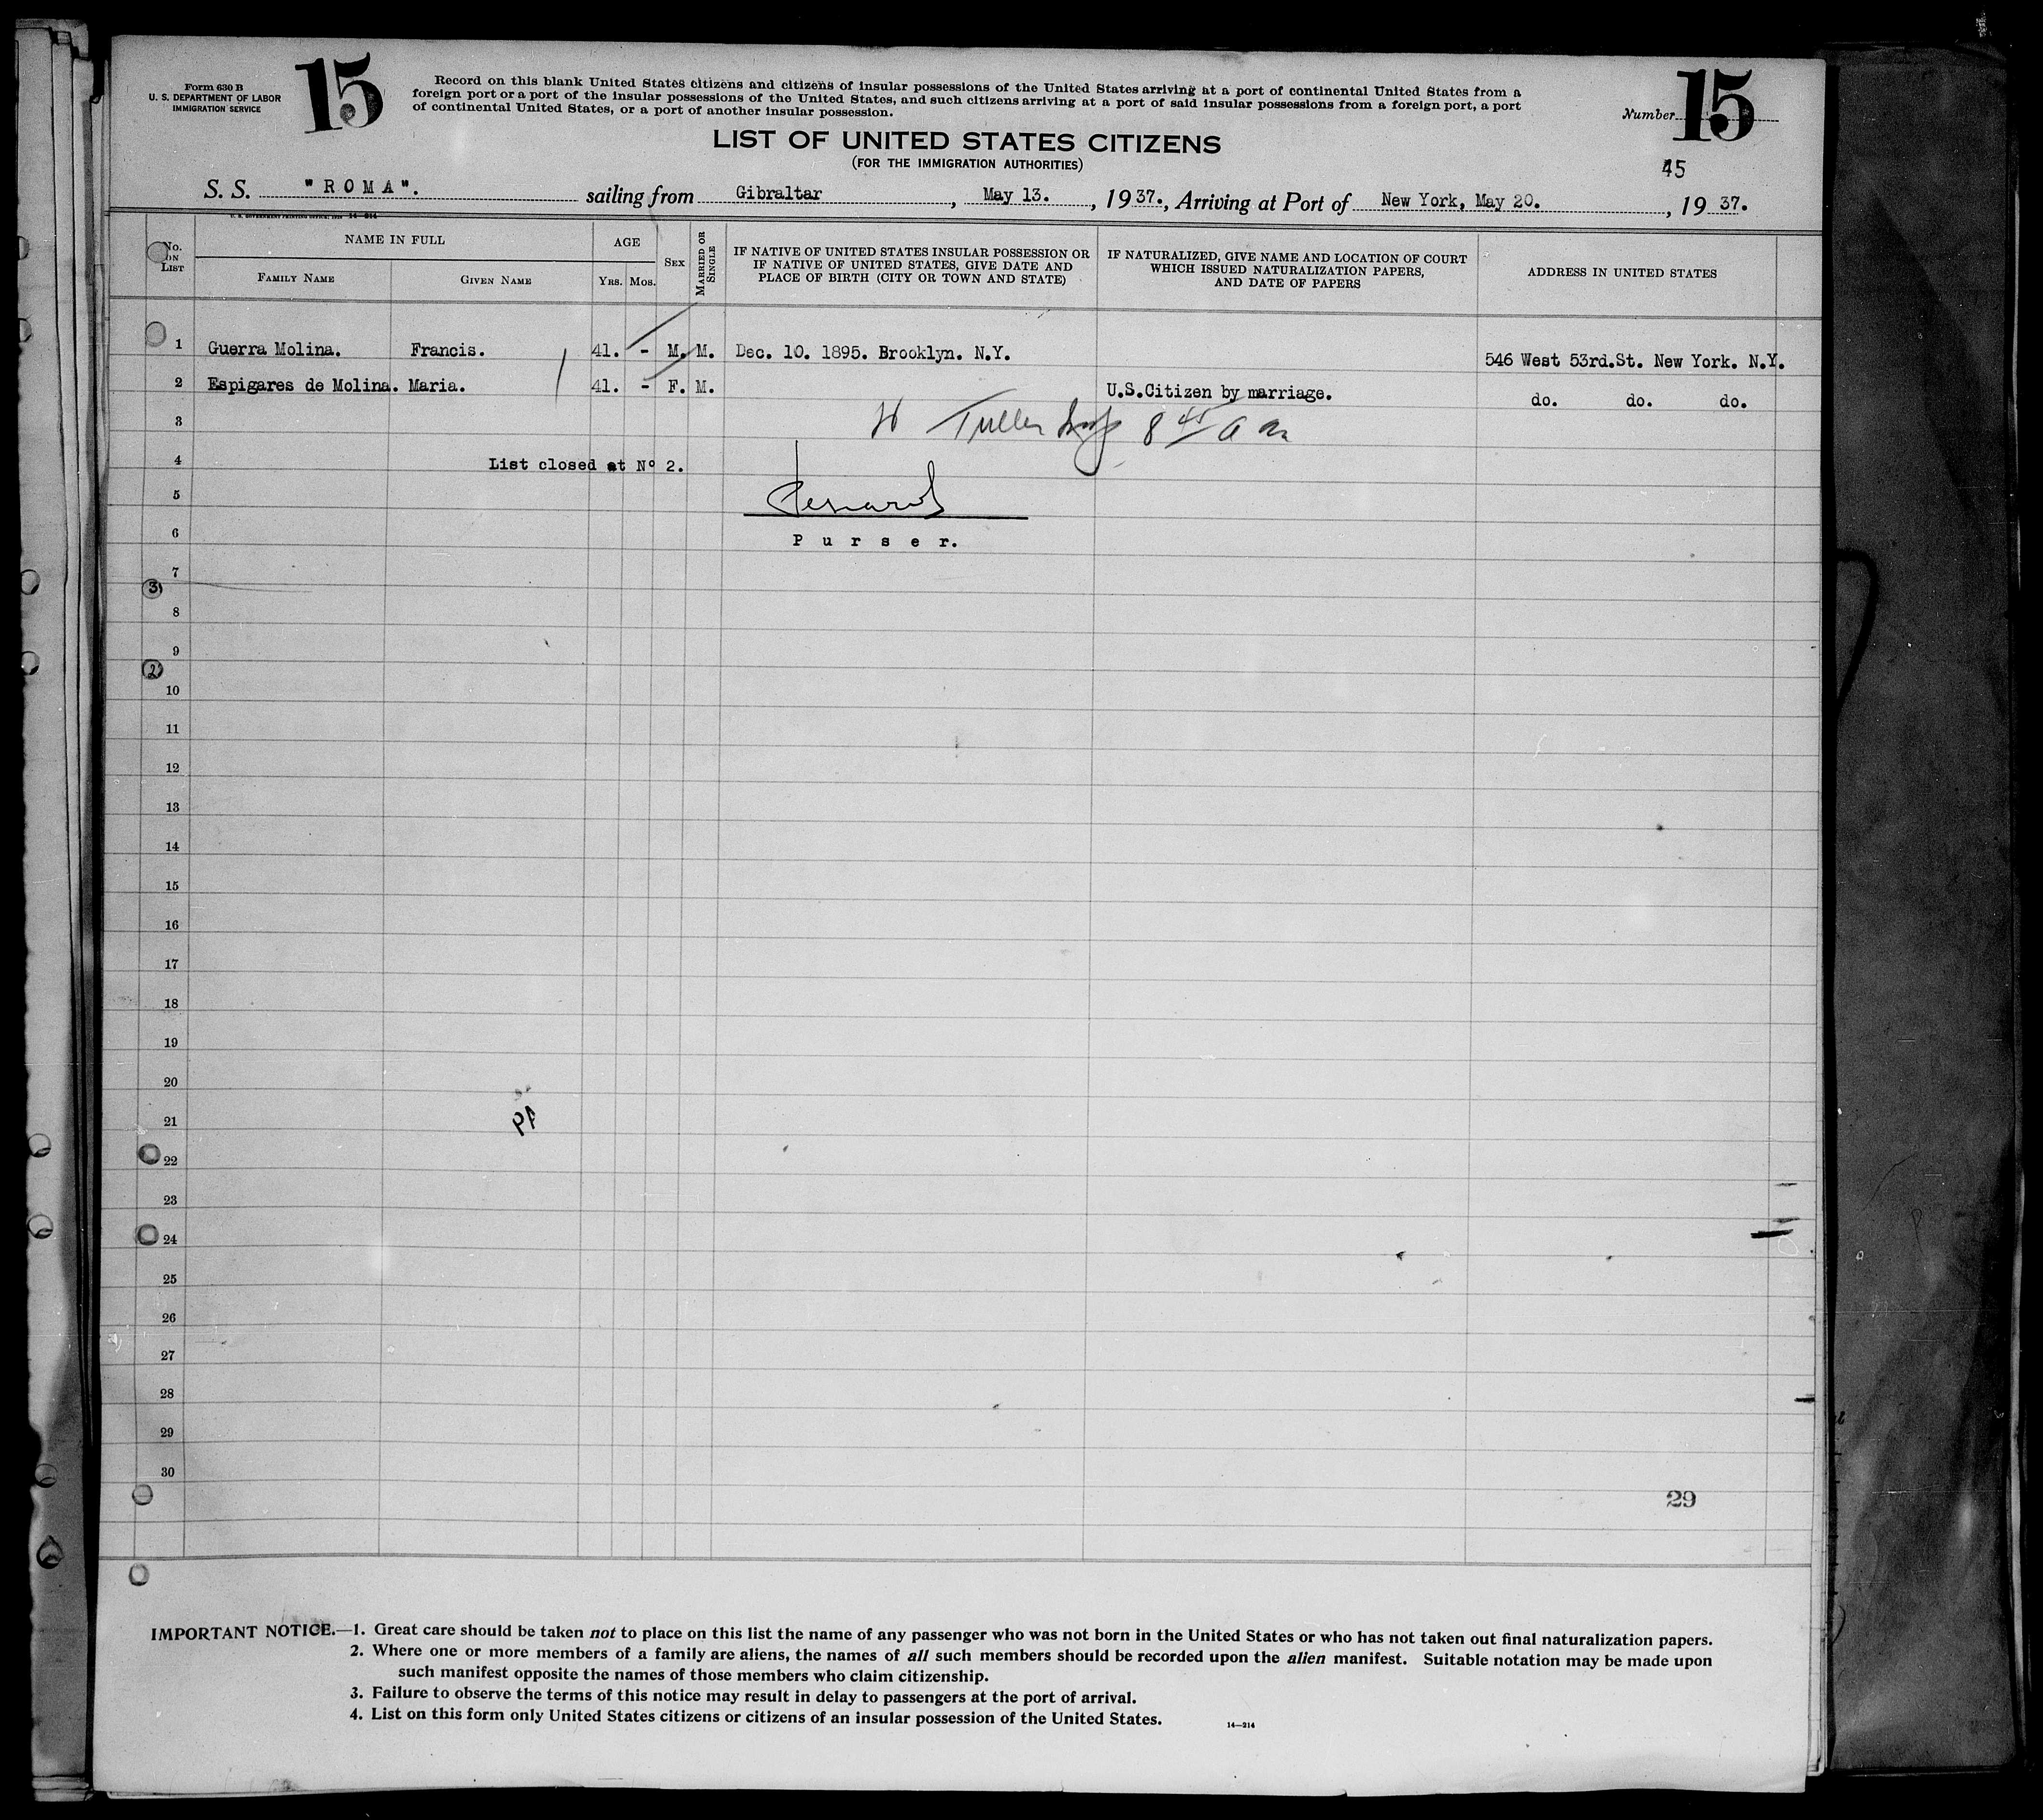 Form 630 B
U. S. DEPARTMENT OF LABOR
IMMIGRATION SERVICE
15
Record on this blank United States citizens and citizens of insular possessions of the United States arriving at a port of continental United States from a
foreign port or a port of the insular possessions of the United States, and such citizens arriving at a port of said insular possessions from a foreign port, a port
of continental United States, or a port of another insular possession.
Number 15
LIST OF UNITED STATES CITIZENS
(FOR THE IMMIGRATION AUTHORITIES)
45
S. S. "ROMA". sailing from Gibraltar, May 13., 1937., Arriving at Port of New York, May 20., 1937.
U. S. GOVERNMENT PRINTING OFFICE 14—214
No. ON LIST
NAME IN FULL
FAMILY NAME GIVEN NAME
AGE
YRS. MOS.
SEX
MARRIED OR SINGLE
IF NATIVE OF UNITED STATES INSULAR POSSESSION OR
IF NATIVE OF UNITED STATES, GIVE DATE AND
PLACE OF BIRTH (CITY OR TOWN AND STATE)
IF NATURALIZED, GIVE NAME AND LOCATION OF COURT
WHICH ISSUED NATURALIZATION PAPERS,
AND DATE OF PAPERS
ADDRESS IN UNITED STATES
1 Guerra Molina. Francis. 41. - M. M. Dec. 10. 1895. Brooklyn. N.Y. 546 West 53rd.St. New York. N.Y.
2 Espigares de Molina. Maria. 41. - F. M. U.S.Citizen by marriage. do. do. do.
3 Tuller Insp 8 45 a m
4 List closed at Nº 2.
5
6 Purser.
7
3
8
9
2
10
11
12
13
14
15
16
17
18
19
20
21
22
23
24
25
26
27
28
29
30
29
IMPORTANT NOTICE.—1. Great care should be taken not to place on this list the name of any passenger who was not born in the United States or who has not taken out final naturalization papers.
2. Where one or more members of a family are aliens, the names of all such members should be recorded upon the alien manifest. Suitable notation may be made upon
such manifest opposite the names of those members who claim citizenship.
3. Failure to observe the terms of this notice may result in delay to passengers at the port of arrival.
4. List on this form only United States citizens or citizens of an insular possession of the United States.
14—214